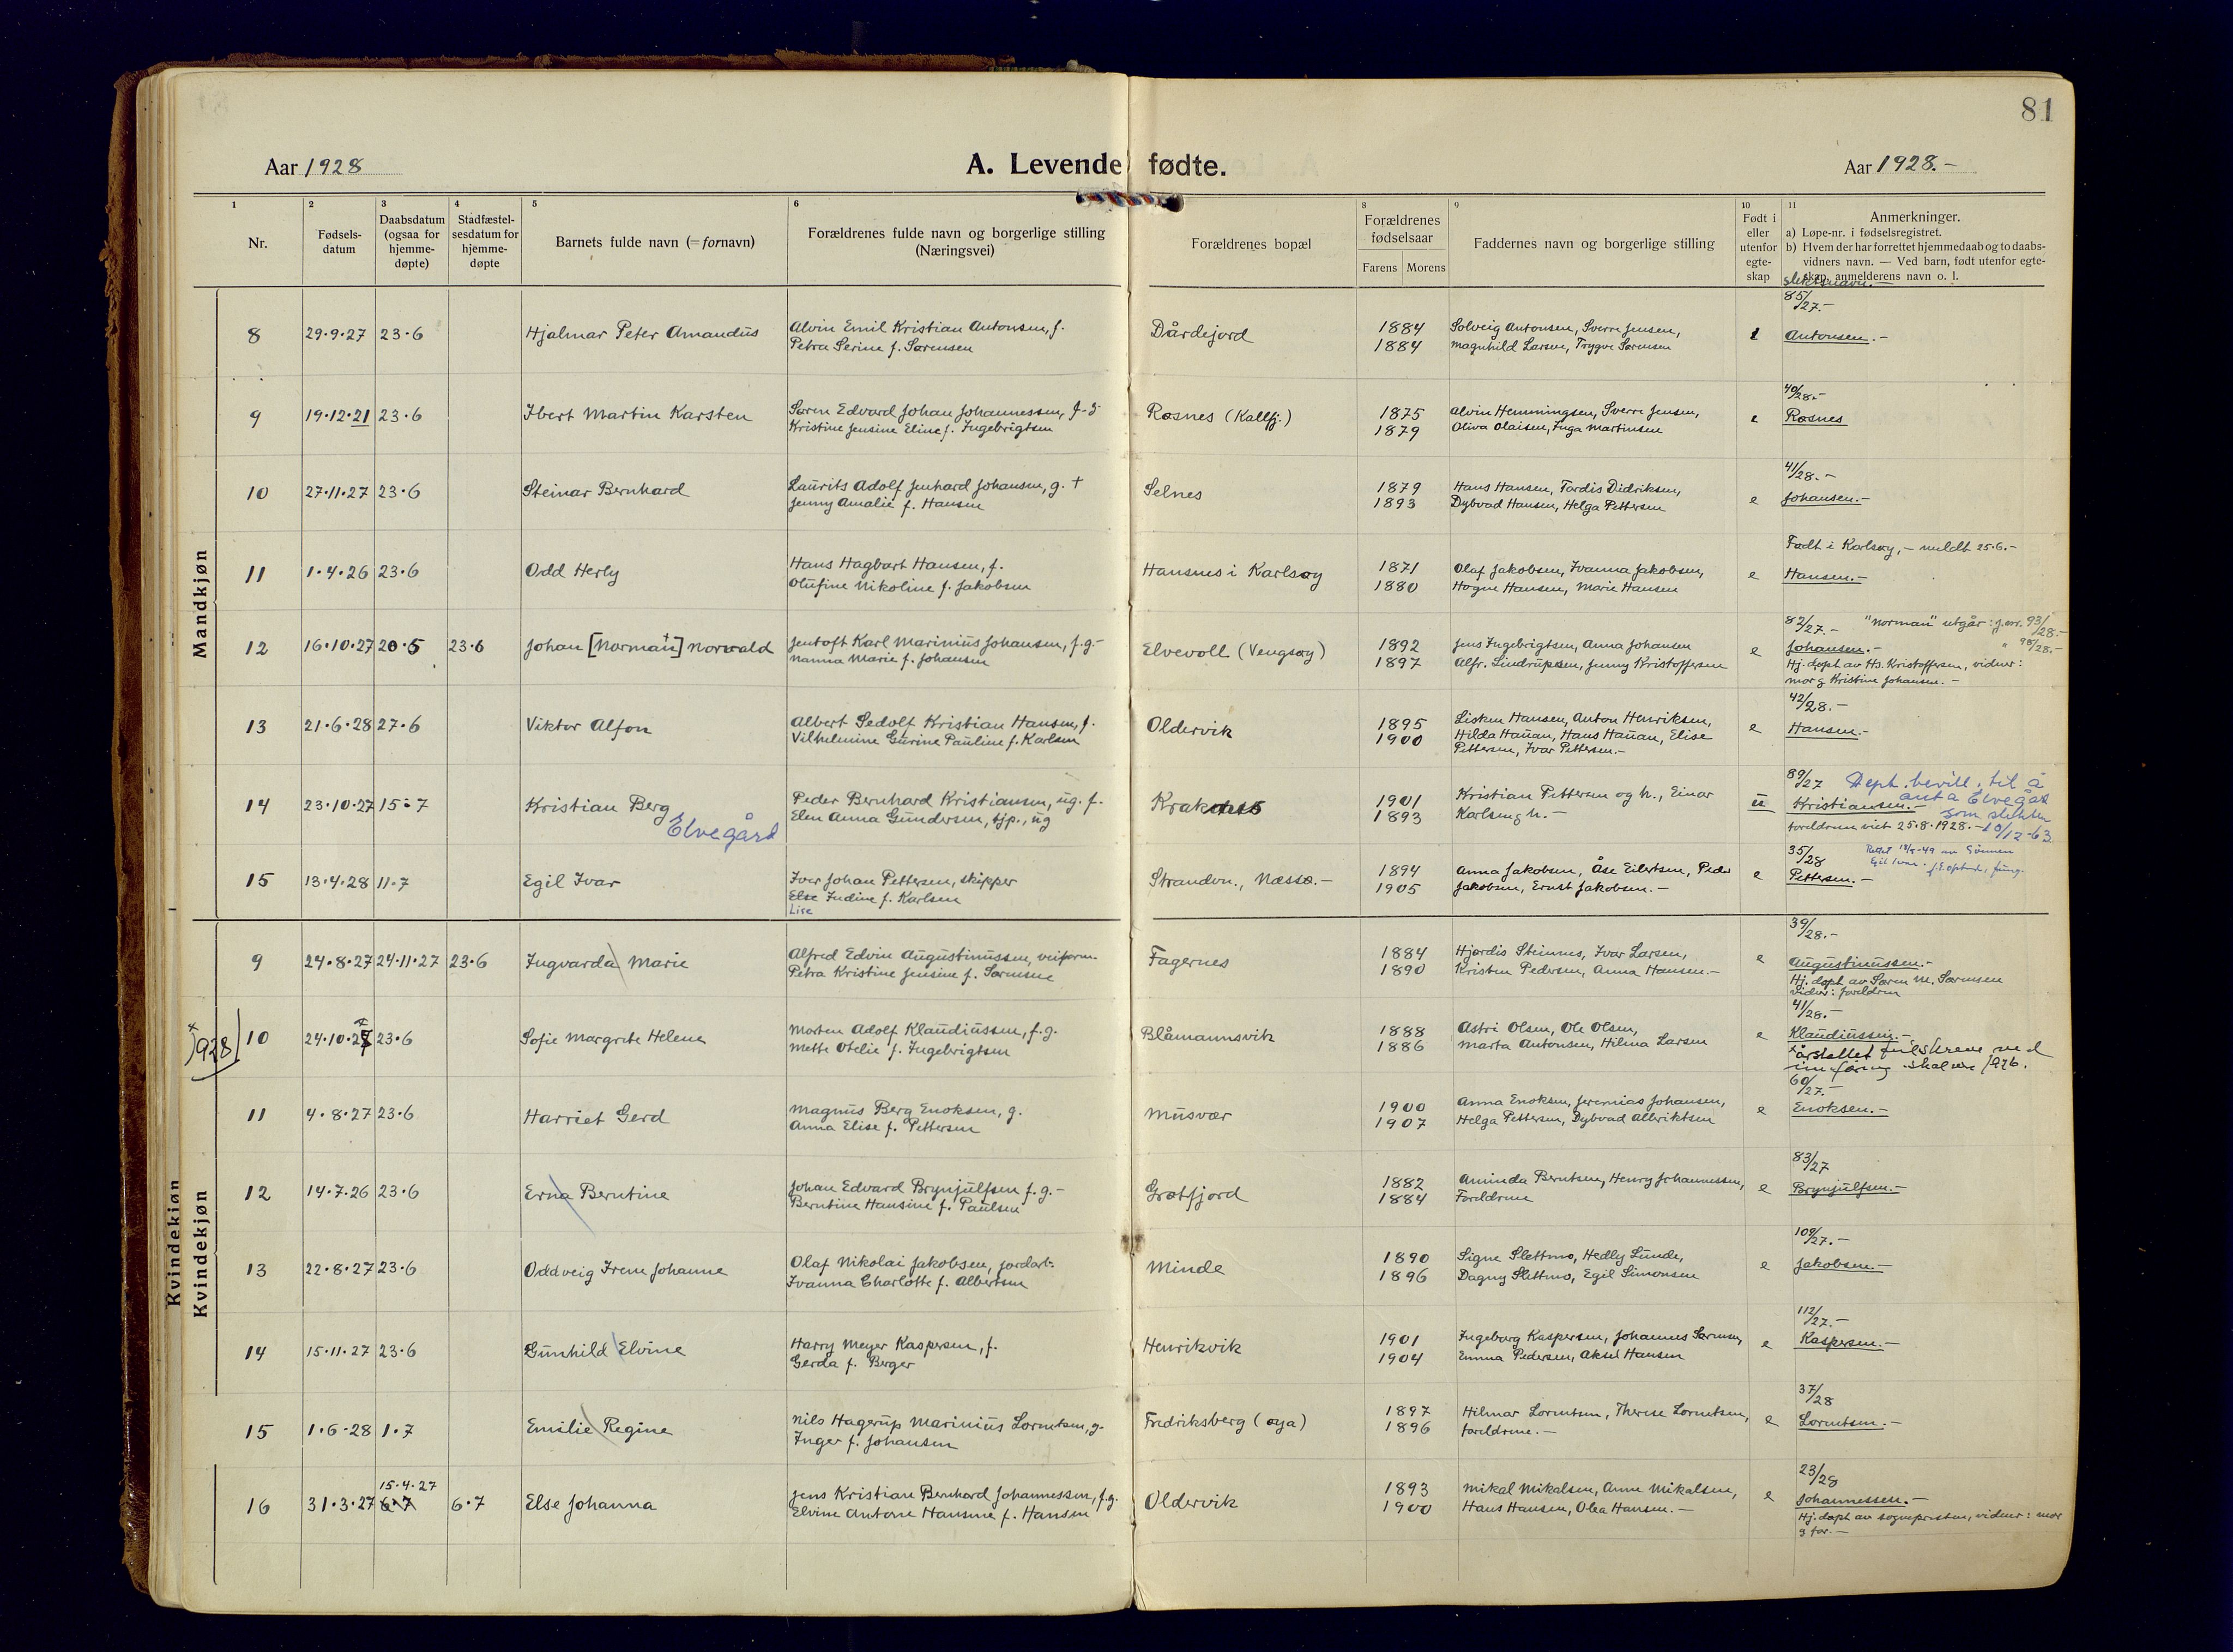 81
Aar 1928
A. Levende fødte.
Aar 1928.-
1 2 3 4 5 6 8 9 10 11
Nr.
Fødsels-
datum
Daabsdatum
(ogsaa for
hjemme-
døpte)
Stadfæstel-
sesdatum for
hjemme-
døpte
Barnets fulde navn (= fornavn)
Forældrenes fulde navn og borgerlige stilling
(Næringsvei)
Forældrenes bopæl
Forældrenes
fødselsaar
Farens Morens
Faddernes navn og borgerlige stilling
Født i
eller
utenfor
egte-
skap
Anmerkninger.
a) Løpe-nr. i fødselsregistret.
b) Hvem der har forrettet hjemmedaab og to daabs-
vidners navn. — Ved barn, født utenfor egte-
skap, anmelderens navn o. l.
slektsnavn.-
Mandkjøn
85/27.-
8 29·9·27 23·6 Hjalmar Peter Amandus Alvin Emil Kristian Antonsen, f. Dårdejord 1884 Solveig Antonsen, Sverre Jensen,
Petra Serine f. Sørensen 1884 Magnhild Larsen, Trygve Sørensen e Antonsen.-
40/28.-
9 19·12·21 23·6 Ibert Martin Karsten Søren Edvard Johan Johannessen, f.g. Røsnes (Kallfj.) 1875 Alvin Hemmingsen, Sverre Jensen,
Kristine Jensine Eline f. Ingebrigtsen 1879 Oliva Olaisen, Inga Martinsen e Røsnes
41/28.-
10 27·11·27 23·6 Steinar Bernhard Laurits Adolf Jenhard Johansen, g. + Selnes 1879 Hans Hansen, Tordis Didriksen,
Jenny Amalie f. Hansen 1893 Dybvad Hansen, Helga Pettersen e Johansen.-
Født i Karlsøy, - meldt 25·6.-
11 1·4·26 23·6 Odd Herly Hans Hagbart Hansen, f. Hansnes i Karlsøy 1871 Olaf Jakobsen, Ivanna Jakobsen,
Olufine Nikoline f. Jakobsen 1880 Hogne Hansen, Marie Hansen e Hansen.-
82/27.- "Norman" utgår: j.nr. 93/28.-
" 98/28.-
12 16·10·27 20·5 23·6 Johan [Norman+] Norvald Jentoft Karl Marinius Johansen, f.g.- Elvevoll (Vengsøy) 1892 Jens Ingebrigtsen, Anna Johansen
Nanna Marie f. Johansen 1897 Alfr. Lindrupsen, Jenny Kristoffersen e Johansen.-
Hj.døpt av Hs. Kristoffersen, vidner:
mor g Kristine Johansen.-
42/28.-
13 21·6·28 27·6 Viktor Alfon Albert Sedolf Kristian Hansen, f. Oldervik 1895 Lisken Hansen, Anton Henriksen,
Vilhelmine Gurine Pauline f. Karlsen 1900 Hilda Hauan, Hans Hauan, Elise e Hansen.-
Pettersen, Ivar Pettersen.-
89/27 Dept. bevill. til å
anta Elvegård
som slektsn
10/12-63.
14 23·10·27 15·7 Kristian Berg Peder Bernhard Kristiansen, ug. f. Kraknes 1901 Kristian Pettersen og h., Einar
Elvegård Elen Anna Gundersen, tjp., ug 1893 Karlsen g h.- u Kristiansen.-
foreldrene viet 25·8·1928.-
35/28
15 13·4·28 11·7 Egil Ivar Ivar Johan Pettersen, skipper Strandvn., Næssø.- 1894 Anna Jakobsen, Åse Eilertsen, Peder
Else Indine f. Karlsen 1905 Jakobsen, Ernst Jakobsen.- e Pettersen.-
Lise
Kvindekjøn
Kvindekjøn
39/28.-
9 24·8·27 24·11·27 23·6 Ingvarda Marie Alfred Edvin Augustinussen, veiform. Fagernes 1884 Hjørdis Steinnes, Ivar Larsen,
Petra Kristine Jensine f. Sørensen 1890 Kristen Pedersen, Anna Hansen.- e Augustinussen.-
Hj.døpt av Søren M. Sørensen
vidner: foreldren
41/28.-
x
1928 10 24·10·27 23·6 Sofie Margrete Helene Morten Adolf Klaudiussen, f.g. Blåmannsvik 1888 Astri Olsen, Ole Olsen,
Mette Otelie f. Ingebrigtsen 1886 Marta Antonsen, Hilma Larsen e Klaudiussen.-
x årstallet feilskreve ved
innføring skal være 1926.
60/27.-
11 4·8·27 23·6 Harriet Gerd Magnus Berg Enoksen, g. Musvær 1900 Anna Enoksen, Jeremias Johansen,
Anna Elise f. Pettersen 1907 Helga Pettersen, Dybvad Albriktsen e Enoksen.-
83/27
12 14·7·26 23·6 Erna Berntine Johan Edvard Brynjulfsen f.g.- Grøtfjord 1882 Aminda Berntsen, Henry Johannessen,
Berntine Hansine f. Paulsen 1884 Foreldrene e Brynjulfsen.-
109/27.-
13 22·8·27 23·6 Oddveig Irene Johanne Olaf Nikolai Jakobsen, jordarb. Minde 1890 Signe Slettmo, Hedly Lunde,
Ivanna Charlotte f. Albertsen 1896 Dagny Slettmo, Egil Simonsen e Jakobsen.-
112/27.-
14 15·11·27 23·6 Gunhild Elvine Harry Meyer Kaspersen, f. Henrikvik 1901 Ingeborg Kaspersen, Johannes Sørensen,
Gerda f. Berger 1904 Emma Pedersen, Aksel Hansen e Kaspersen.-
37/28
15 1·6·28 1·7 Emilie Regine Nils Hagerup Marinius Lorentsen, g. Fredriksberg (øya) 1897 Hilmar Lorentsen, Therese Lorentsen,
Inger f. Johansen 1896 foreldrene.- e Lorentsen.-
23/28
15·4·27
16 31·3·27 6·7 6·7 Else Johanna Jens Kristian Bernhard Johannessen, f.g. Oldervik 1893 Mikal Mikalsen, Anne Mikalsen,
Elvine Antone Hansine f. Hansen 1900 Hans Hansen, Olea Hansen.- e Johannessen.-
Hj.døpt av sognepresten, vidner: mor
g far.-